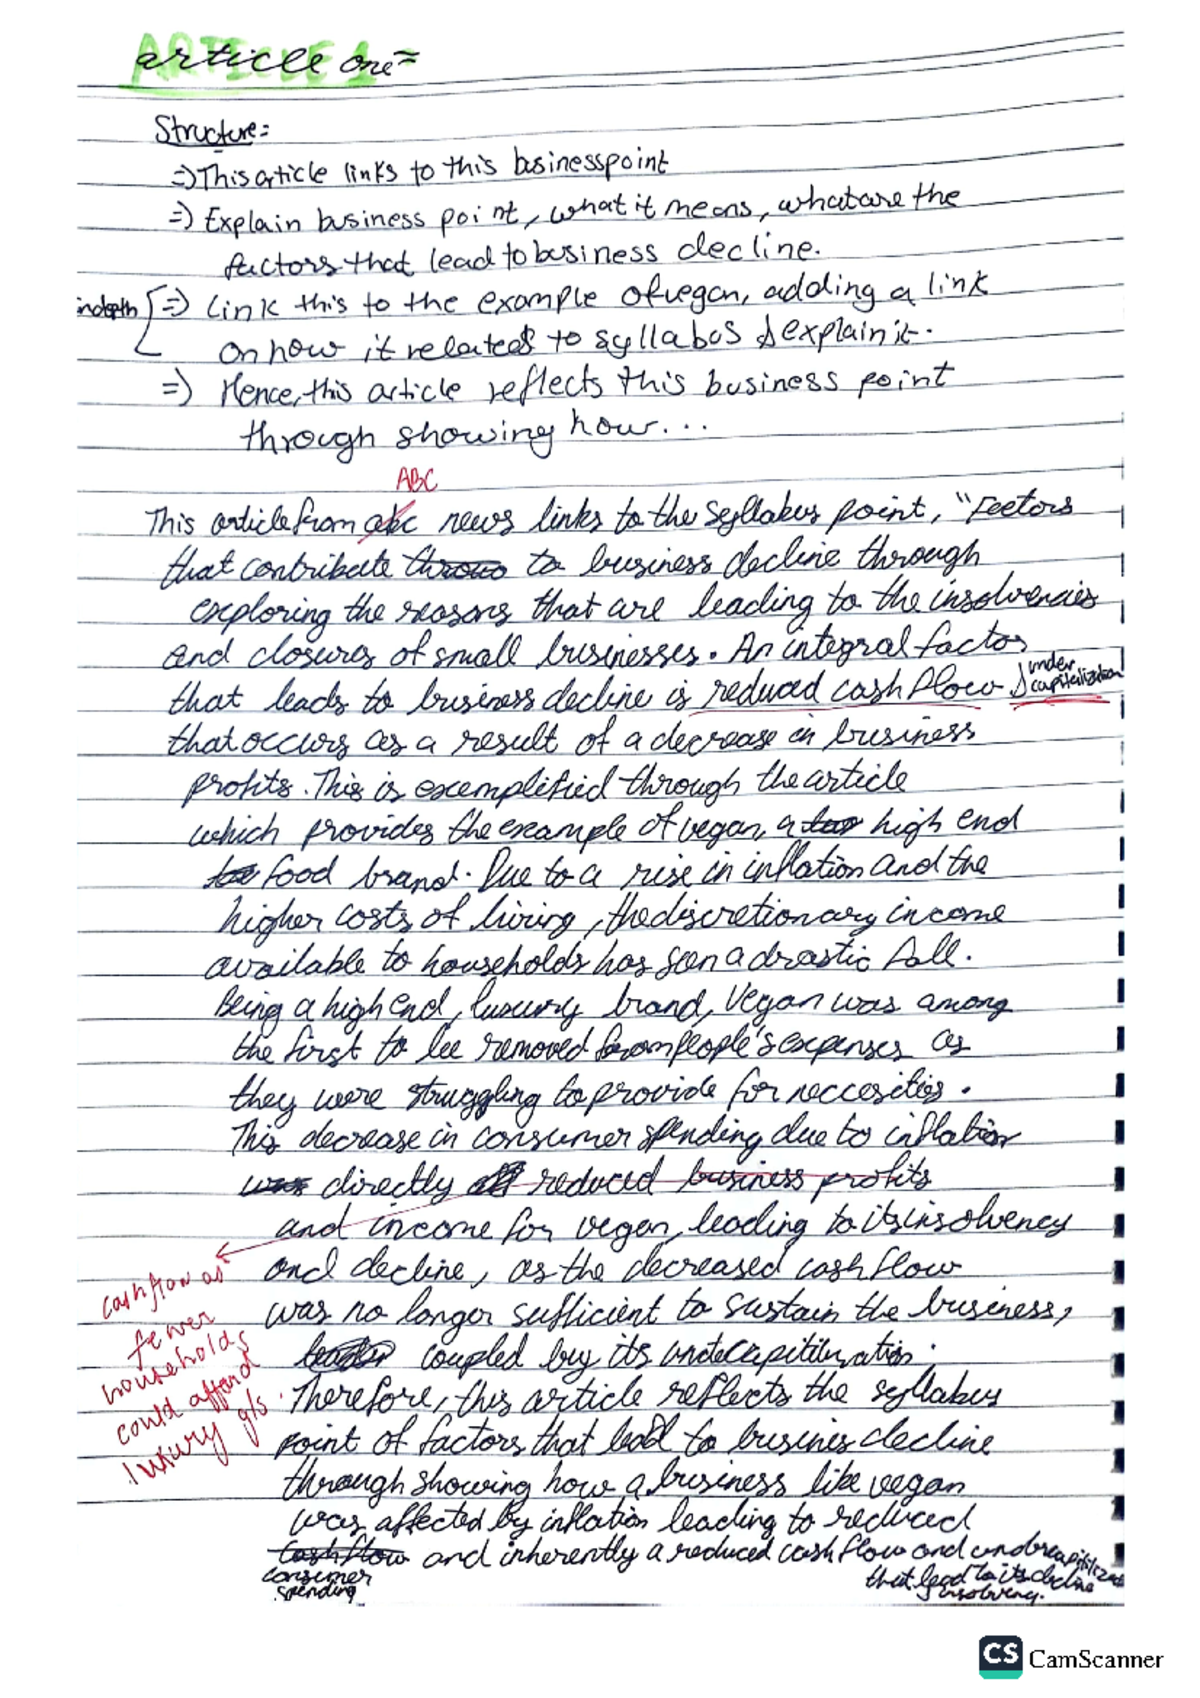 article one =
Structure =
=) This article links to this business point
=) Explain business point, what it means, what are the
factors that lead to business decline.
indepth =) Link this to the example of vegan, adding a link
on how it relates to syllabus & explain it.
=) Hence, this article reflects this business point
through showing how...
ABC
This article from abc news links to the syllabus point, "Factors
that contribute to business decline through
exploring the reasons that are leading to the insolvencies
and closures of small businesses. An integral factor
that leads to business decline is reduced cash flow & under capitalization
that occurs as a result of a decrease in business
profits. This is exemplified through the article
which provides the example of vegan, a high end
food brand. Due to a rise in inflation and the
higher costs of living, the discretionary income
available to households has seen a drastic fall.
Being a high end, luxury brand, Vegan was among
the first to be removed from people's expenses as
they were struggling to provide for neccesities.
This decrease in consumer spending due to inflation
was directly reduced business profits
and income for vegan, leading to its insolvency
and decline, as the decreased cash flow
was no longer sufficient to sustain the business,
coupled by its
Therefore, this article reflects the syllabus
point of factors that lead to busines decline
through showing how a business like vegan
was affected by inflation leading to reduced
cash flow and inherently a reduced cash flow and
consumer
spending
that lead to its decline
insolvency.
cashflow as
fewer
households
could afford
luxury g/s.
CS CamScanner